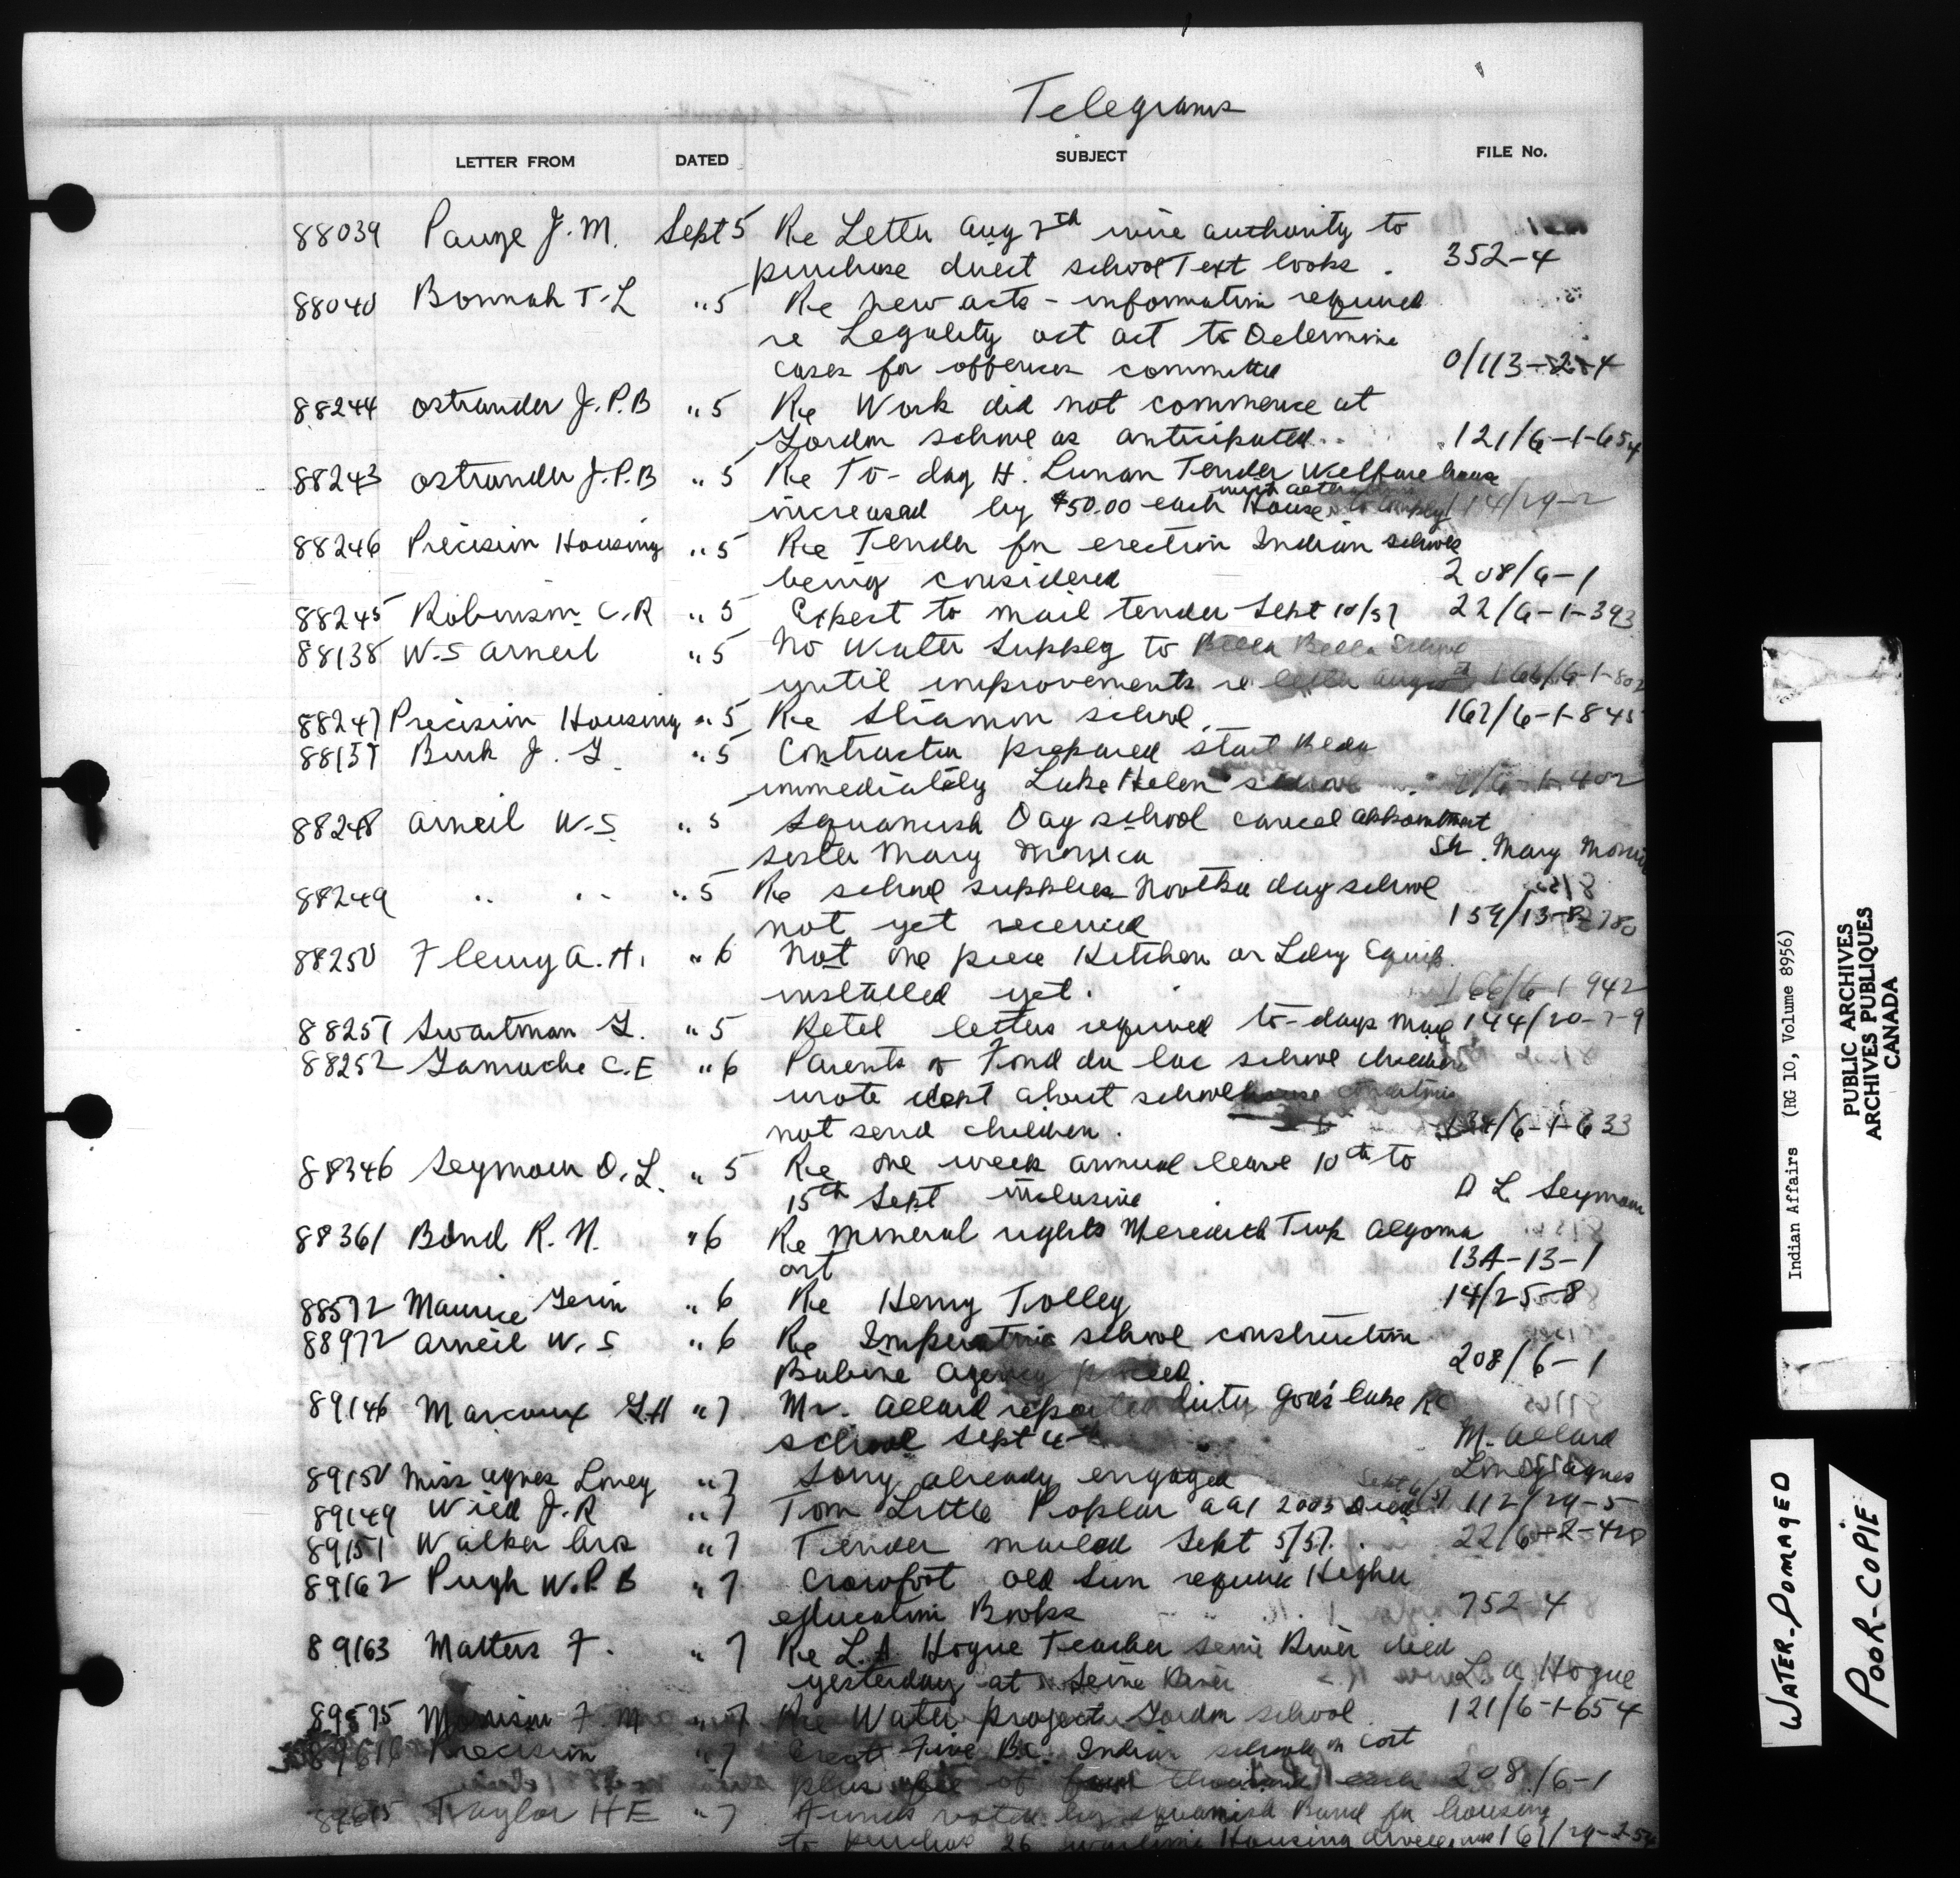 Telegrams
LETTER FROM DATED SUBJECT FILE No.
88039 Pauze J. M. Sept 5 Re Letter Aug 7th wire authority to
purchase direct school Text books. 352-4
88040 Bonnah T. L " 5 Re new acts - information required
re Legality act to Determine
cases for offences committed 0/113-2-4
88244 Ostrander J.P.B " 5 Re Work did not commence at
Gordon school as anticipated. 121/6-1-654
88243 Ostrander J.P.B " 5 Re To-day H. Lunan Tender Welfare house
increased by $50.00 each House 114/29-2
88246 Precision Housing " 5 Re Tender for erection Indian schools
being considered 208/6-1
88245 Robinson C.R " 5 Expect to mail tender Sept 10/51 22/6-1-393
88138 W.S Arneil " 5 No Water Supply to Bella Bella School
until improvements re letter Aug 166/6-1-802
88247 Precision Housing " 5 Re Sliamon school. 167/6-1-845
88157 Burk J. G " 5 Contractor prepared start Bldg
immediately Lake Helen school 6-1-402
88248 Arneil W.S " 5 Squamish Day school cancel appointment
sister Mary Monica Sr. Mary Monica
88249 " " " 5 Re school supplies Nootka day school
not yet received 159/13-8-780
88250 Fleury A. H. " 6 Not one piece Kitchen or Ldry Equip.
installed yet. 166/6-1-942
88251 Swartman G. " 5 Retel letters required to-days mail 144/20-7-9
88252 Gamache C.E " 6 Parents of Fond du lac school children
wrote dept about schoolhouse
not send children. 134/6-1-633
88346 Seymour D. L. " 5 Re one week annual leave 10th to
15th Sept inclusive D L. Seymour
88361 Bond R. N. " 6 Re mineral rights Meredith Twp Algoma
Ont 13A-13-1
88572 Maurice Gerin " 6 Re Henry Tolley 14/25-8
88972 Arneil W. S " 6 Re Imperative school construction
Babine Agency proceed 208/6-1
89146 Marcoux G.H " 7 Mr. Allard reported duty God's Lake RC
school Sept 4th M. Allard
89150 Miss Agnes Loney " 7 Sorry already engaged Loney Agnes
89149 Wild J.R " 7 Tom Little Poplar aal 2003 died Sept 6/51 112/29-5
89151 Walker Bros " 7 Tender mailed Sept 5/51. 22/6-2-420
89162 Pugh W.P.B " 7 Crowfoot Old Sun require Higher
education Books 752-4
89163 Matters F. " 7 Re L.A Hogue Teacher Seine River died
yesterday at Seine River L. A Hogue
89575 Morrison F. M " 7 Re Water project Gordon school 121/6-1-654
89616 Precision " 7 Erect Five B.C. Indian schools on cost
plus fee of four thousand each 208/6-1
89615 Taylor H E " 7 Funds voted by Squamish Band for housing
to purchase 26 wartime Housing 167/29-2-54
Indian Affairs (RG 10, Volume 8956)
PUBLIC ARCHIVES
ARCHIVES PUBLIQUES
CANADA
WATER-DOMAGED
POOR-COPIE